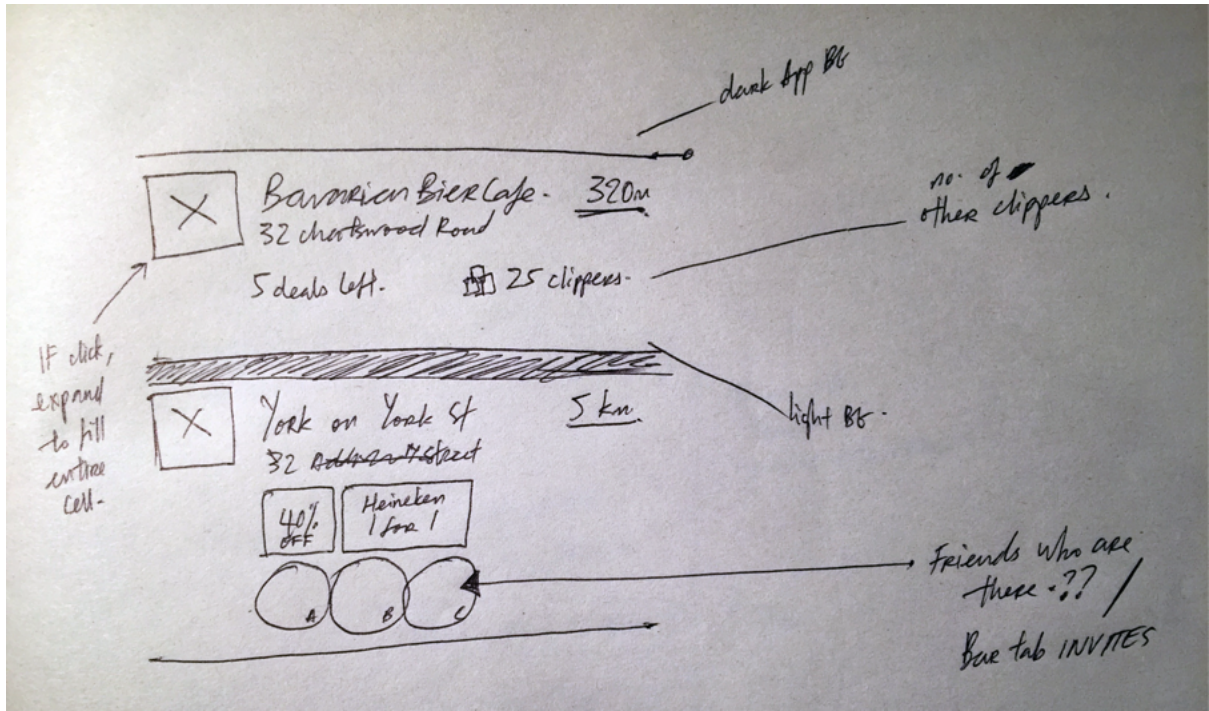 dark App BG
Bavarian Bier Cafe. 320m
32 chatswood Road
no. of
other clippers.
5 deals left. 25 clippers.
IF click,
expand
to fill
entire
cell.
York on York St 5 km.
light BG.
32 Street
40%
OFF
Heineken
1 for 1
A B C
Friends who are
there.?? /
Bar tab INVITES